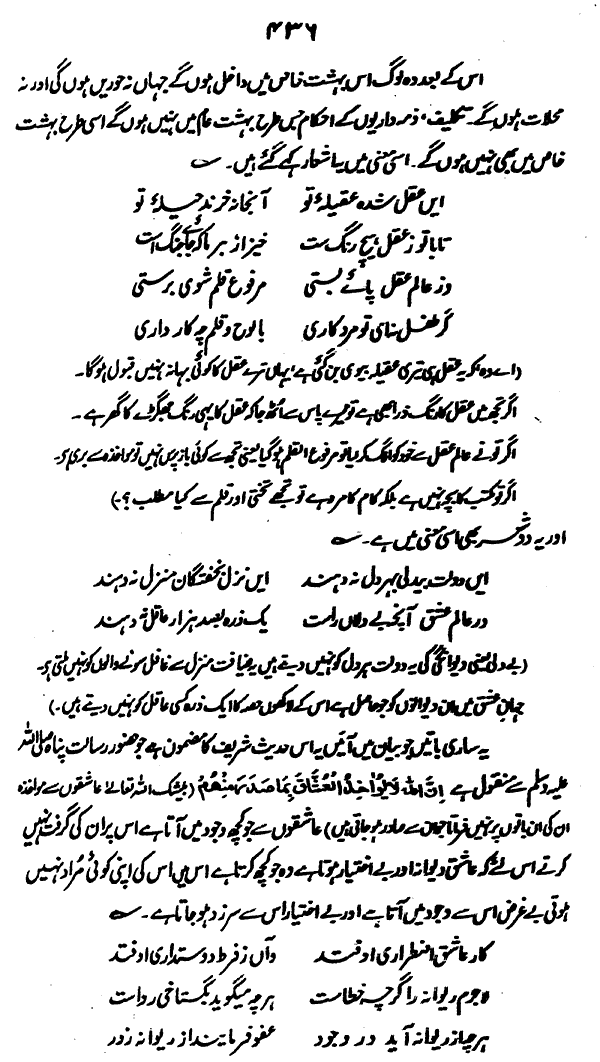 ۴۳۶
اس کے بعد وہ لوگ اس بہشت خاص میں داخل ہوں گے جہاں نہ حوریں ہوں گی اور نہ
محلات ہوں گے۔ تکلیف، ذمہ داریوں کے احکام جس طرح بہشت عام میں نہیں ہوں گے اسی طرح بہشت
خاص میں بھی نہیں ہوں گے۔ اسی معنی میں یہ اشعار کہے گئے ہیں۔
ایں عقل شدہ عقیلۂ تو آنجا نہ خرند حیلۂ تو
تا با تو ز عقل ہیچ رنگ ست خیز از بر ما کہ جائے جنگ است
وز عالم عقل پائے بستی مرفوع قلم شوی برستی
گر طفل نہ ای تو مرد کاری با لوح و قلم چہ کار داری
(اے وہ کہ یہ عقل ہی تیری عقیلہ بیوی بن گئی ہے، یہاں تیرے عقل کا کوئی بہانہ نہیں قبول ہوگا۔
اگر تجھ میں عقل کا رنگ ذرا بھی ہے تو میرے پاس سے اٹھ جا کہ عقل کا یہی رنگ جھگڑے کا گھر ہے۔
اگر تو نے عالم عقل سے خود کو الگ کر دیا تو مرفوع القلم ہو گیا یعنی تجھ سے کوئی باز پرس نہیں تو مواخذہ سے بری ہے۔
اگر تو مکتب کا بچہ نہیں ہے بلکہ کام کا مرد ہے تو تجھے تختی اور قلم سے کیا مطلب؟۔)
اور یہ دو شعر بھی اسی معنی میں ہے۔
ایں دولت بیدلی بہر دل نہ دہند ایں نزل بخفتگان منزل نہ دہند
در عالم عشق آنچہ بے دلاں راست یک ذرہ بصد ہزار عاقل نہ دہند
(بے دلی یعنی دیوانگی کی یہ دولت ہر دل کو نہیں دیتے ہیں یہ ضیافت منزل سے غافل سونے والوں کو نہیں ملتی ہے۔
جہان عشق میں ان دیوانوں کو جو حاصل ہے اس کے لاکھوں حصہ کا ایک ذرہ کسی عاقل کو نہیں دیتے ہیں۔)
یہ ساری باتیں جو بیان میں آئیں یہ اس حدیث شریف کا مضمون ہے جو حضور رسالت پناہ صلی اللہ
علیہ وسلم سے منقول ہے اِنَّ اللّٰہَ لَا یُوَاخِذُ الْعُشَّاقَ بِمَا صَدَرَ مِنْھُمْ (بیشک اللہ تعالیٰ عاشقوں سے مواخذہ
ان کی ان باتوں پر نہیں فرماتا جو ان سے صادر ہو جاتی ہیں) عاشقوں سے جو کچھ وجود میں آتا ہے اس پر ان کی گرفت نہیں
کرتے اس لئے کہ عاشق دیوانہ اور بے اختیار ہوتا ہے وہ جو کچھ کرتا ہے اس میں اس کی اپنی کوئی مُراد نہیں
ہوتی بے غرض اس سے وجود میں آتا ہے اور بے اختیار اس سے سرزد ہو جاتا ہے۔
کار عاشق اضطراری اوفتد وآں ز فرط دوستداری اوفتد
لاجرم دیوانہ را گرچہ خطاست ہرچہ میگوید بگستاخی رواست
ہرچہ از دیوانہ آید در وجود عفو فرمایند از دیوانہ زود